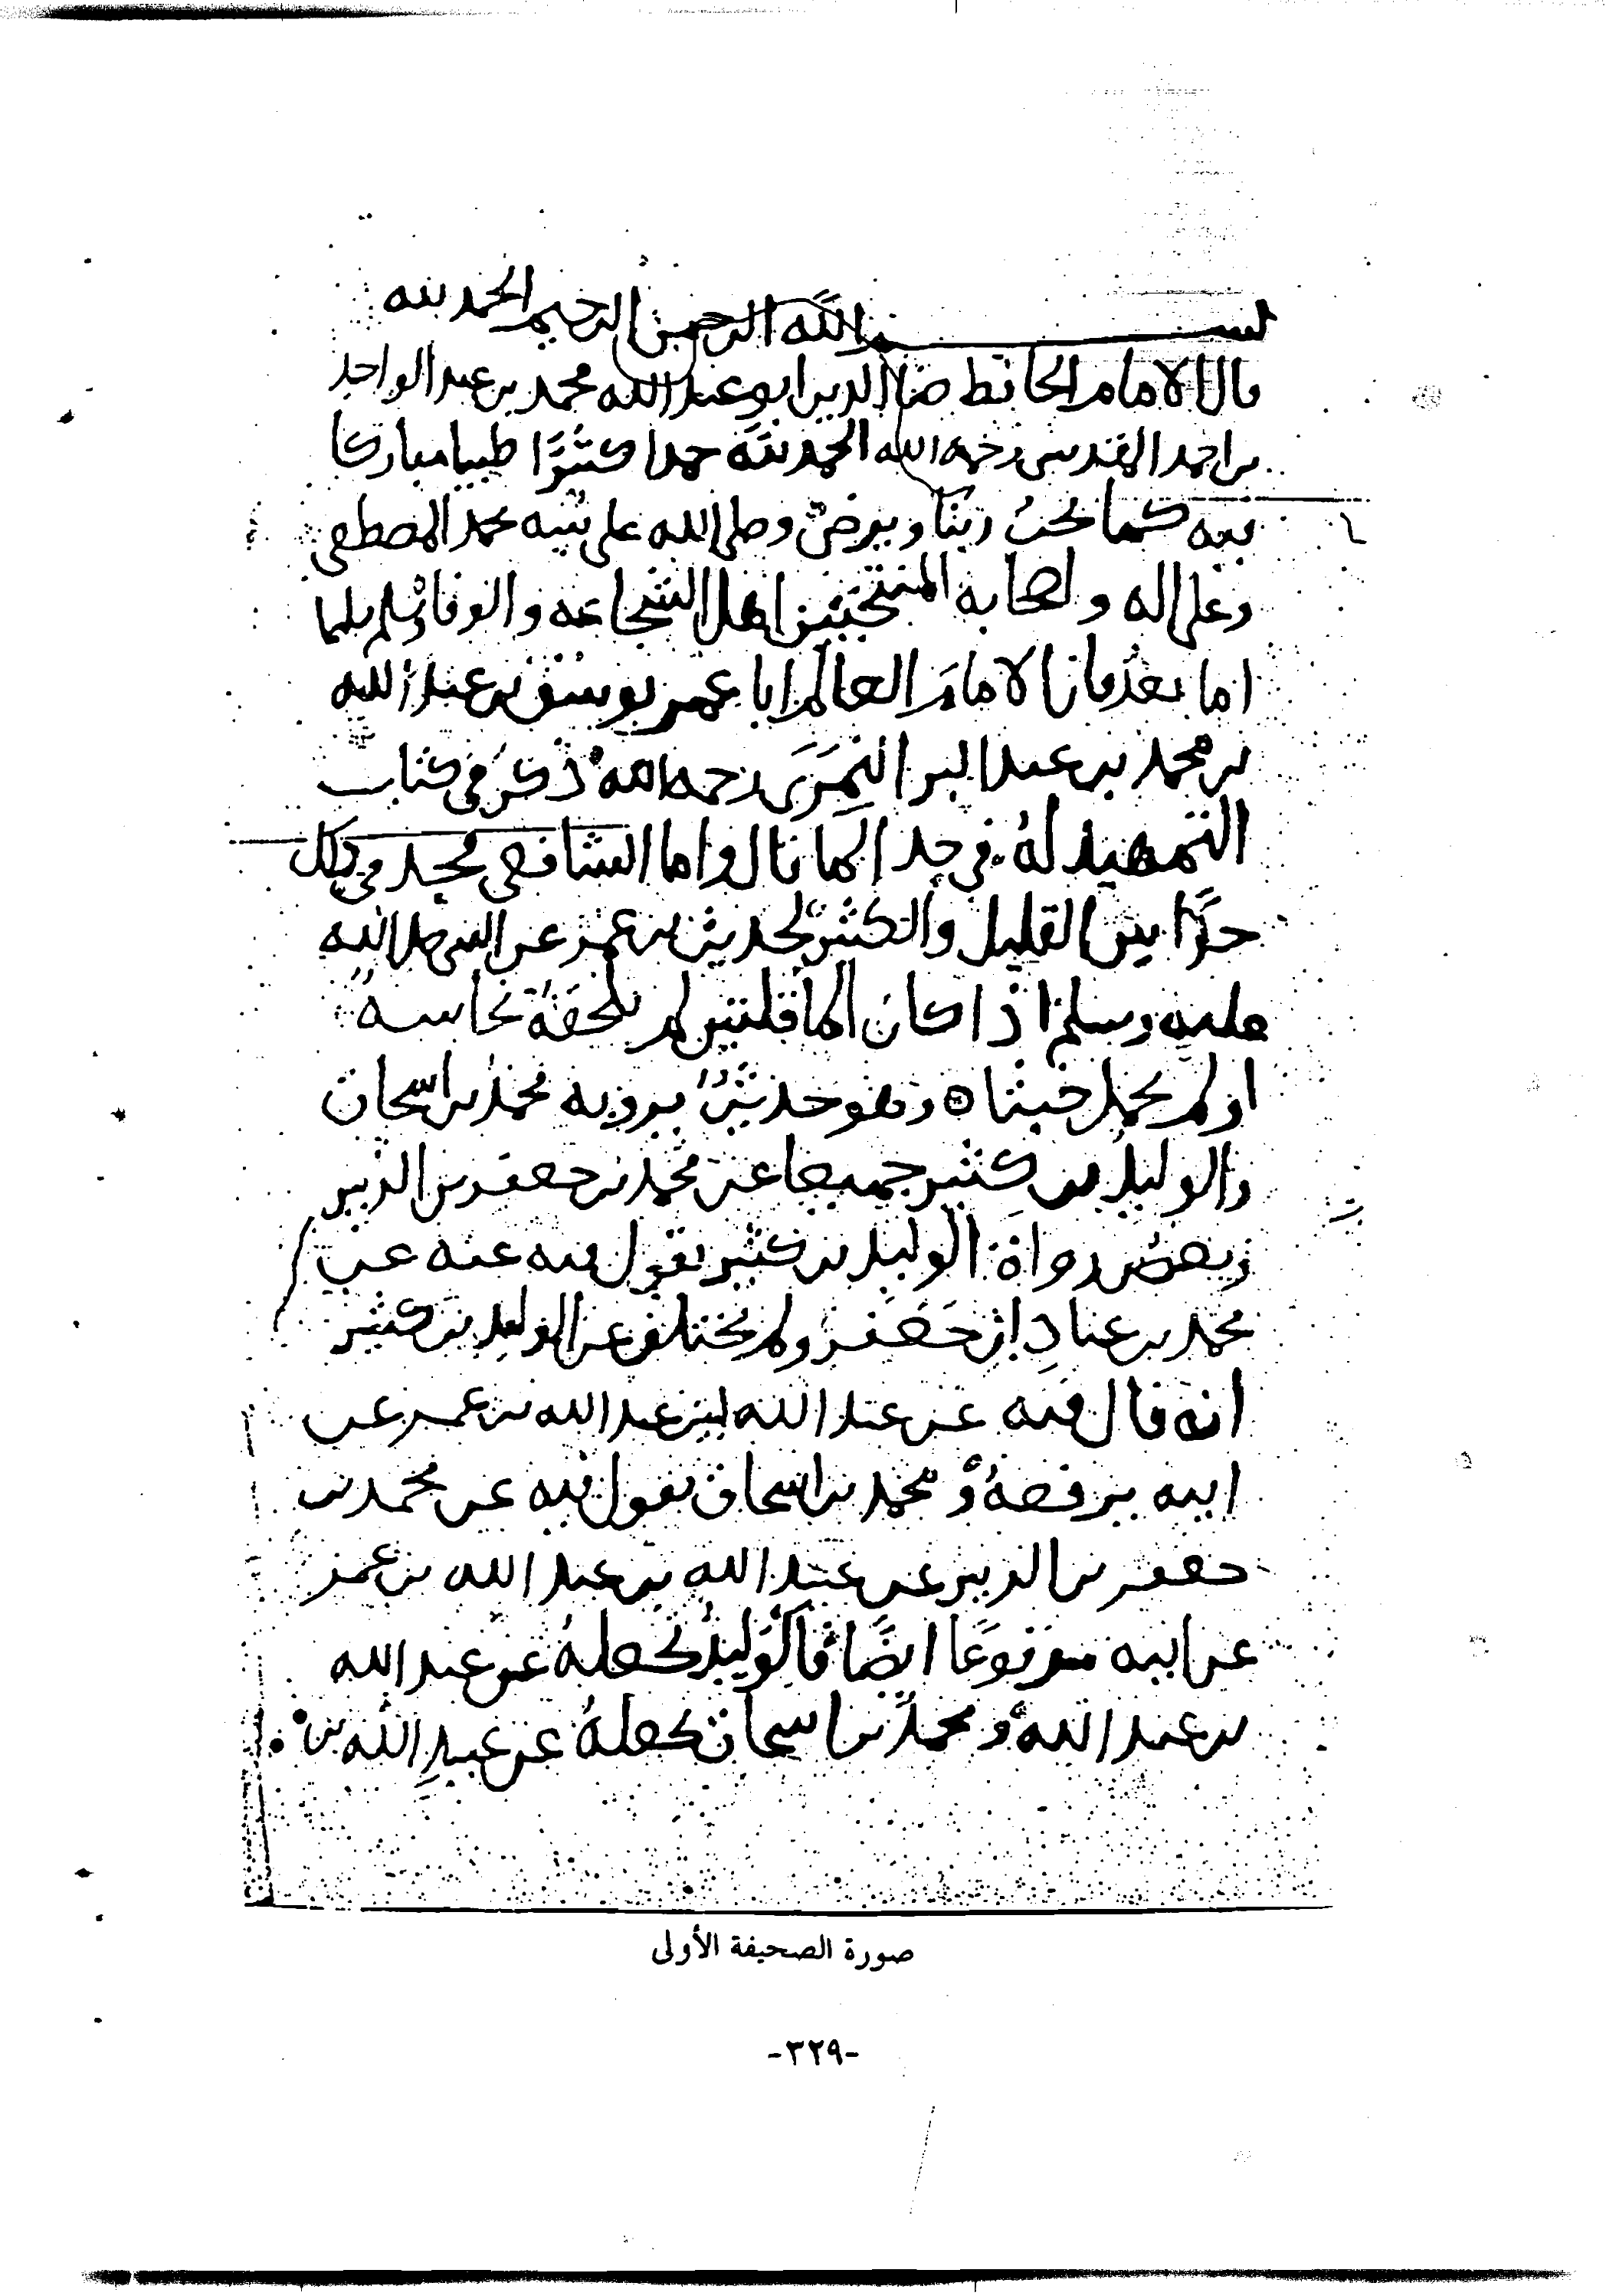 بسم الله الرحمن الرحيم الحمد لله
قال الامام الحافظ ضيا الدين ابو عبد الله محمد بن عبد الواحد
بن احمد المقدسي رحمه الله الحمد لله حمدا كثيرًا طيبا مباركا
فيه كما يحبُ ربنا ويرضىٰ وصلى الله على نبيه محمد المصطفى
وعلى اله واصحابه المنتخبين اهل الشجاعه والوفا وسلم
اما بعدُ فان الامامَ العالم ابا عمر يوسف بن عبد الله
بن محمد بن عبد البر النِّمَرَي رحمه الله ذكرَ في كتاب
التمهيد لهُ في حد الما قال واما الشافعي فحد في ذلك
حدًّا بين القليل والكثير لحديث بن عمر عن النبي صلى الله
عليه وسلم اذا كان الما قلتين لم يلحقهُ نجاسهُ
او لم يحمل خبثا ٥ وهو حديثٌ يرويه محمدُ بن اسحاق
والوليدُ بن كثير جميعا عن محمد بن جعفر بن الزبير
وبعضُ رواة الوليد بن كثير يقول فيه عنه عن
محمد بن عبادِ ابنِ جَعفر ولم يختلف عن الوليد بن كثير
انه قال فيه عن عبد الله بن عبد الله بن عمر عن
ابيه يرفعهُ ومحمد بن اسحاق يقول فيه عن محمد بن
جعفر بن الزبير عن عبيد الله بن عبد الله بن عمر
عن ابيه مرفوعًا ايضًا فالوَليدُ يجعلهُ عن عبد الله
بن عبد الله ومحمدُ بن اسحاق يجعلهُ عن عبيدِ الله بن
صورة الصحيفة الأولى
-٣٢٩-